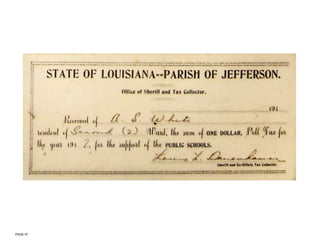 STATE OF LOUISIANA--PARISH OF JEFFERSON.
Office of Sheriff and Tax Collector.
191
Received of A. S. White
resident of Second (2) Ward, the sum of ONE DOLLAR, Poll Tax for
the year 191 7, for the support of the PUBLIC SCHOOLS.
Louis L.
Sheriff and Ex-Officio Tax Collector.
PAGE 37